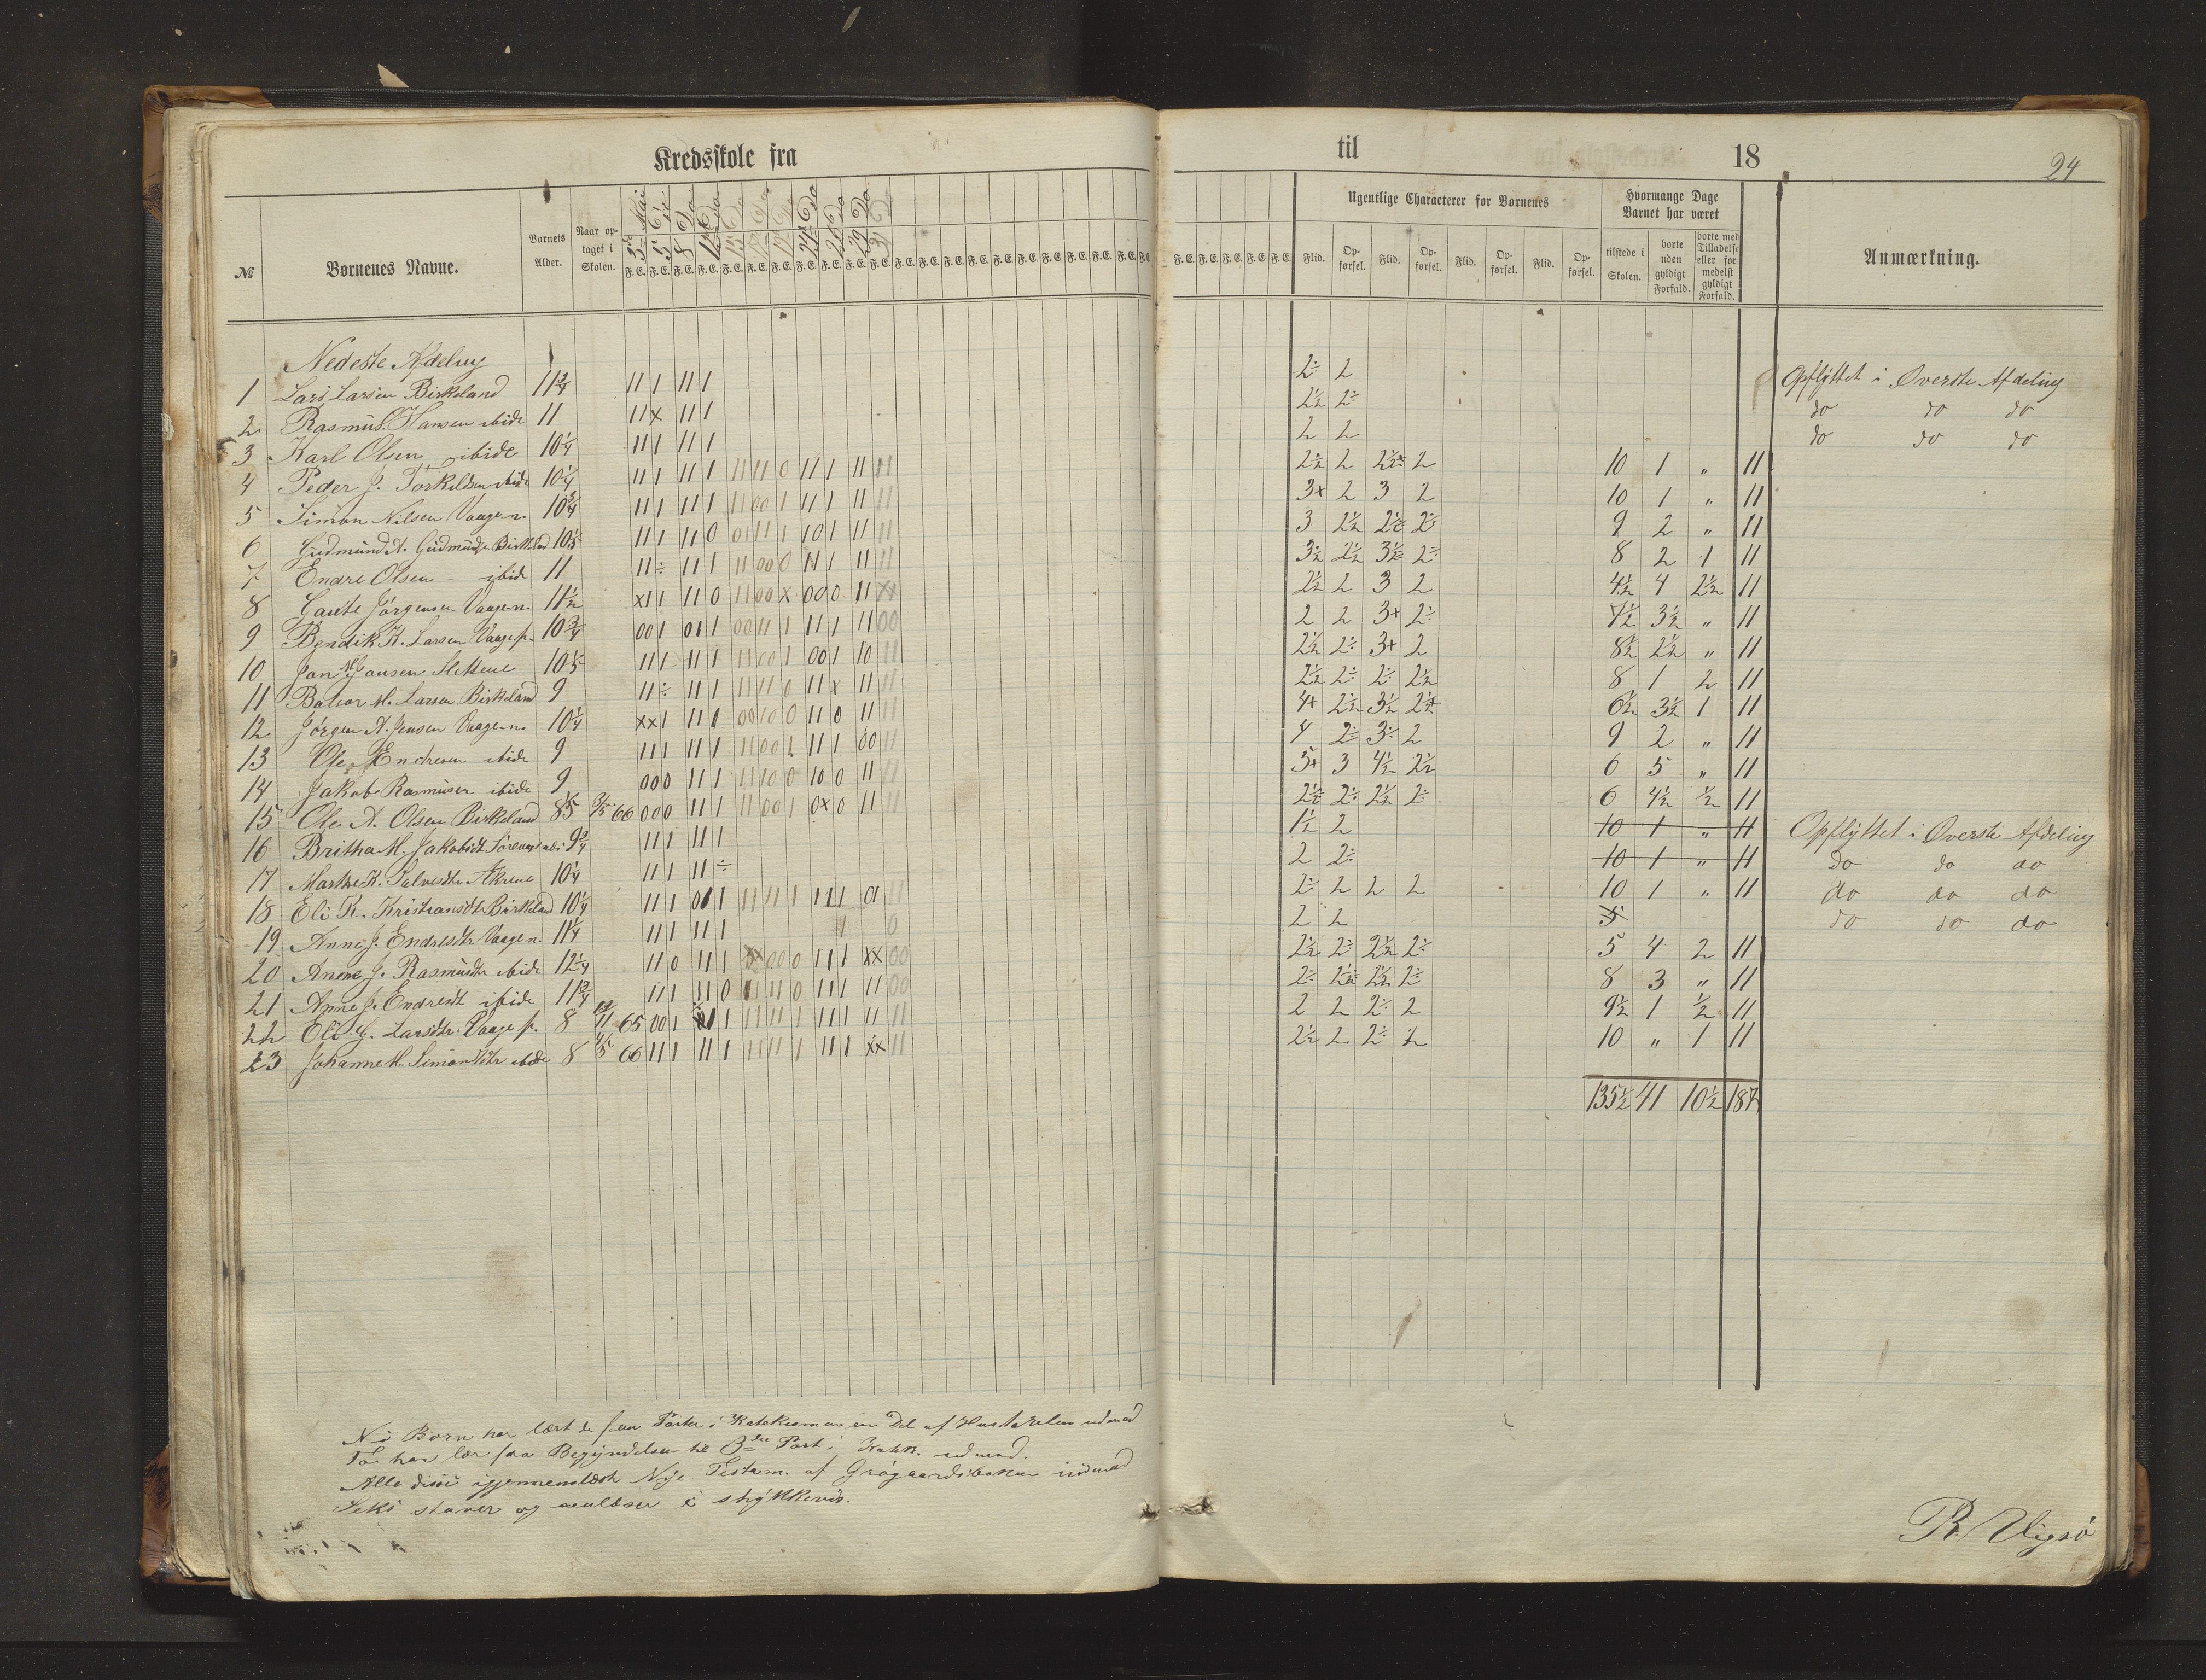 Kredsskole fra
til
18
24
№
Børnenes Navne.
Barnets Alder.
Naar optaget i Skolen.
3die Mai
5 Do
8 Do
F. E. F. E. F. E. F. E. F. E. F. E. F. E. F. E. F. E. F. E. F. E. F. E. F. E. F. E. F. E. F. E. F. E. F. E. F. E. F. E. F. E.
F. E. F. E. F. E. F. E. F. E.
Ugentlige Characterer for Børnenes
Flid. Opførsel. Flid. Opførsel. Flid. Opførsel. Flid. Opførsel.
Hvormange Dage Barnet har været
tilstede i Skolen.
borte uden gyldigt Forfald.
borte med Tilladelse eller formedelst gyldigt Forfald.
Anmærkning.
Nedeste Afdeling
1 Lars Larsen Birkeland 11 3/4 11 1 11 1 2÷ 2 Opflyttet i Øverste Afdeling
2 Rasmus Hansen ibide 11 11 x 11 1 2½ 2÷ do do do
3 Karl Olsen ibide 10 1/4 11 1 11 1 2 2 do do do
4 Peder J. Torkildsen ibide 10 1/4 11 1 11 1 11 11 0 11 1 11 11 2½ 2 2½+ 2 10 1 " 11
5 Simon Nilsen Vaage n. 10 3/4 11 1 11 1 11 00 1 11 1 11 11 3+ 2 3 2 10 1 " 11
6 Gudmund A. Gudmunds. Birkeland 10 1/5 11 1 11 0 01 11 1 10 1 11 11 3 2½ 2½ 2÷ 9 2 " 11
7 Endre Olsen ibide 11 11 ÷ 11 1 11 00 0 11 1 11 11 3½ 2½ 3½ 2÷ 8 2 1 11
8 Gaute Jørgensen Vaage n. 11½ x1 1 11 0 11 00 x 00 0 11 x1 2½ 2 3 2 4½ 4 2½ 11
9 Bendik K. Larsen Vaage p. 10 3/4 00 1 01 1 00 11 1 11 1 11 00 2 2 3+ 2÷ 7½ 3½ " 11
10 Jan Jansen 10 1/5 11 1 11 1 11 00 1 00 1 10 11 2½ 2÷ 3+ 2 8½ 2½ " 11
11 M. Larsen Birkeland 9 11 ÷ 11 1 11 11 0 11 x 11 11 2½ 2÷ 2÷ 2½ 8 1 2 11
12 Jørgen A. Jensen Vaage n. 10 1/4 xx 1 11 0 00 10 0 11 0 11 11 4+ 2½ 3½ 2½+ 6½ 3½ 1 11
13 Ole Endresen ibide 9 11 1 11 1 11 00 1 11 1 00 11 4 2÷ 3÷ 2 9 2 " 11
14 Jakob Rasmusen ibide 9 00 0 11 1 11 10 0 10 0 11 11 3+ 3 4½ 2½ 6 5 " 11
15 Ole A. Olsen Birkeland 8 1/5 3/5 66 00 0 11 1 11 00 1 0x 0 11 11 2½ 2÷ 2½ 2÷ 6 4½ ½ 11
16 Britha M. Jakobsdt. 9 3/4 11 1 11 1 1½ 2 10 1 " 11 Opflyttet i Øverste Afdeling
17 Marthe K. Salvesdtr. Akrene 10 1/4 11 1 11 ÷ 2 2÷ 10 1 " 11 do do do
18 Eli K. Kristiansdt. Birkeland 10 1/4 11 1 01 1 11 11 1 11 1 01 11 2÷ 2 2 2 10 1 " 11 do do do
19 Anne J. Endresdtr Vaage n. 11 1/4 11 1 11 1 1 0 2 2 5 do do do
20 Anne J. Rasmusdtr ibide 12 1/4 11 0 11 1 xx 00 0 11 1 xx 00 2½ 2÷ 2½ 2÷ 5 4 2 11
21 Anne J. Endresdt ibide 11 3/4 11 1 11 0 11 11 0 11 1 11 00 2÷ 2½ 2½ 2÷ 8 3 " 11
22 Eli G. Larsdtr. Vaage p. 8 13/11 65 00 1 01 1 11 11 1 11 1 11 11 2 2 2÷ 2 9½ 1 ½ 11
23 Johanne M. Simonsdtr ibide 8 4/5 66 11 1 11 1 11 11 1 11 1 xx 11 2½ 2 2÷ 2 10 " 1 11
135½ 41 10½ 187
Ni Børn har lært de fem Parter i Katekismen en Del af Hustavlen udenad
To har lær fra Begyndelsen til 3die Part i Katk. udenad.
Alle disse igjennemlæste Nye Testam. af Grøgaardsboken udenad
Seks staver og i stykkevis.
R. Vigsø